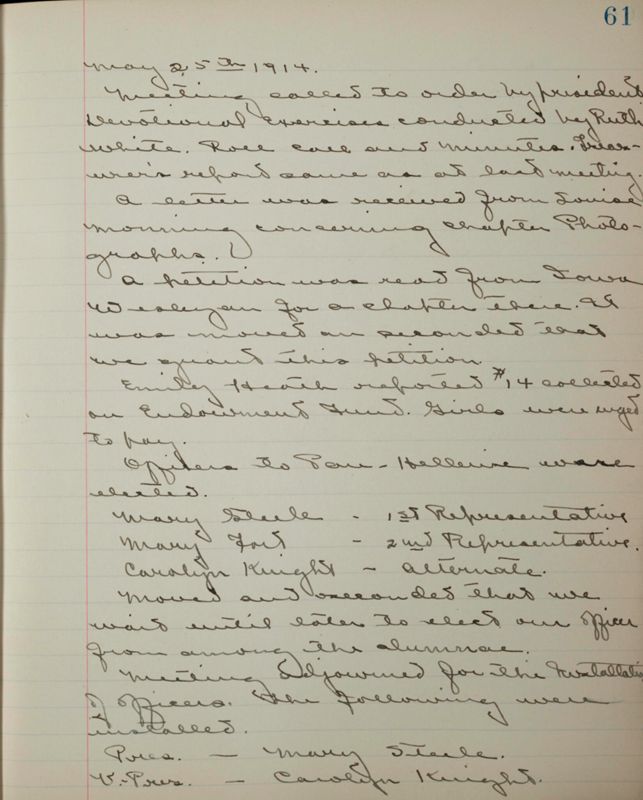 61
May 25th 1914.
Meeting called to order by president
Devotional Exercises conducted by Ruth
White. Roll call and minutes. Treas-
urer's report same as at last meeting.
A letter was received from Louise
Morning concerning chapter Photo-
graphs.
A petition was read from Iowa
Wesleyan for a chapter there. It
was moved an seconded that
we grant this petition
Emily Heath reported $14 collected
on Endowment Fund. Girls were urged
to pay.
Officers to Pan-Hellenic were
elected.
Mary Steele - 1st Representative
Mary Fort - 2nd Representative.
Carolyn Knight - Alternate.
Moved and seconded that we
wait until later to elect our officer
from among the alumnae.
Meeting adjourned for the Installation
of officers. The following were
installed.
Pres. - Mary Steele.
V-Pres. - Carolyn Knight.